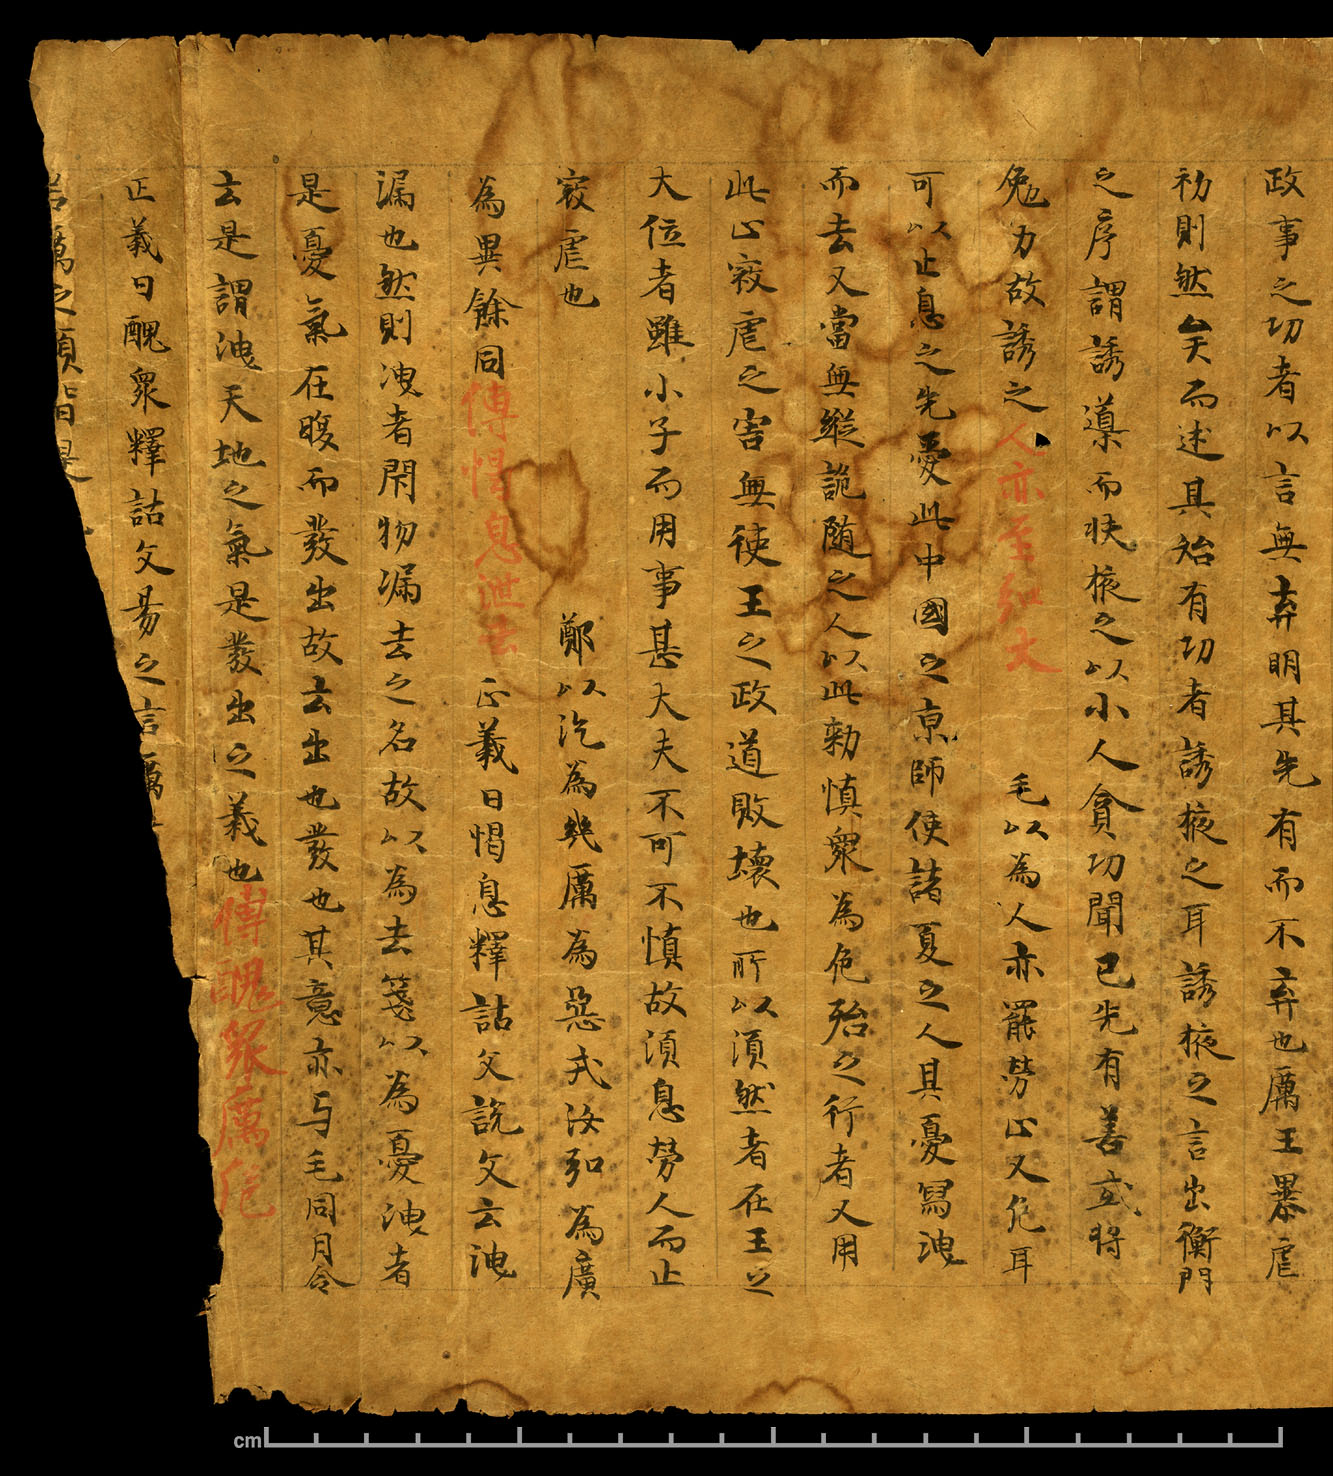 政事之功者以言無弃明其先有而不弃也厲王暴虐
初則然矣而述其始有功者誘掖之耳誘掖之言出衡門
之序謂誘導而扶掖之以小人貪功聞己先有善或將
勉力故誘之人亦至弘大　毛以為人亦罷勞止又危耳
可以止息之先憂此中國之京師使諸夏之人其憂寫洩
而去又當無縱詭随之人以此勑慎衆為危殆之行者又用
此止寇虐之害無使王之政道敗壞也所以須然者在王之
大位者雖小子而用事甚大大夫不可不慎故須息勞人而止
寇虐也　鄭以汔為幾厲為惡式汝弘為廣
為異餘同傳愒息泄去　正義曰愒息釋詁文說文云洩
漏也然則洩者閇物漏去之名故以為去箋以為憂洩者
是憂氣在腹而發出故去出也發也其意亦与毛同月令
云是謂洩天地之氣是發出之義也傳醜衆厲危
正義曰醜衆釋詁文易之言厲
厲之須皆是